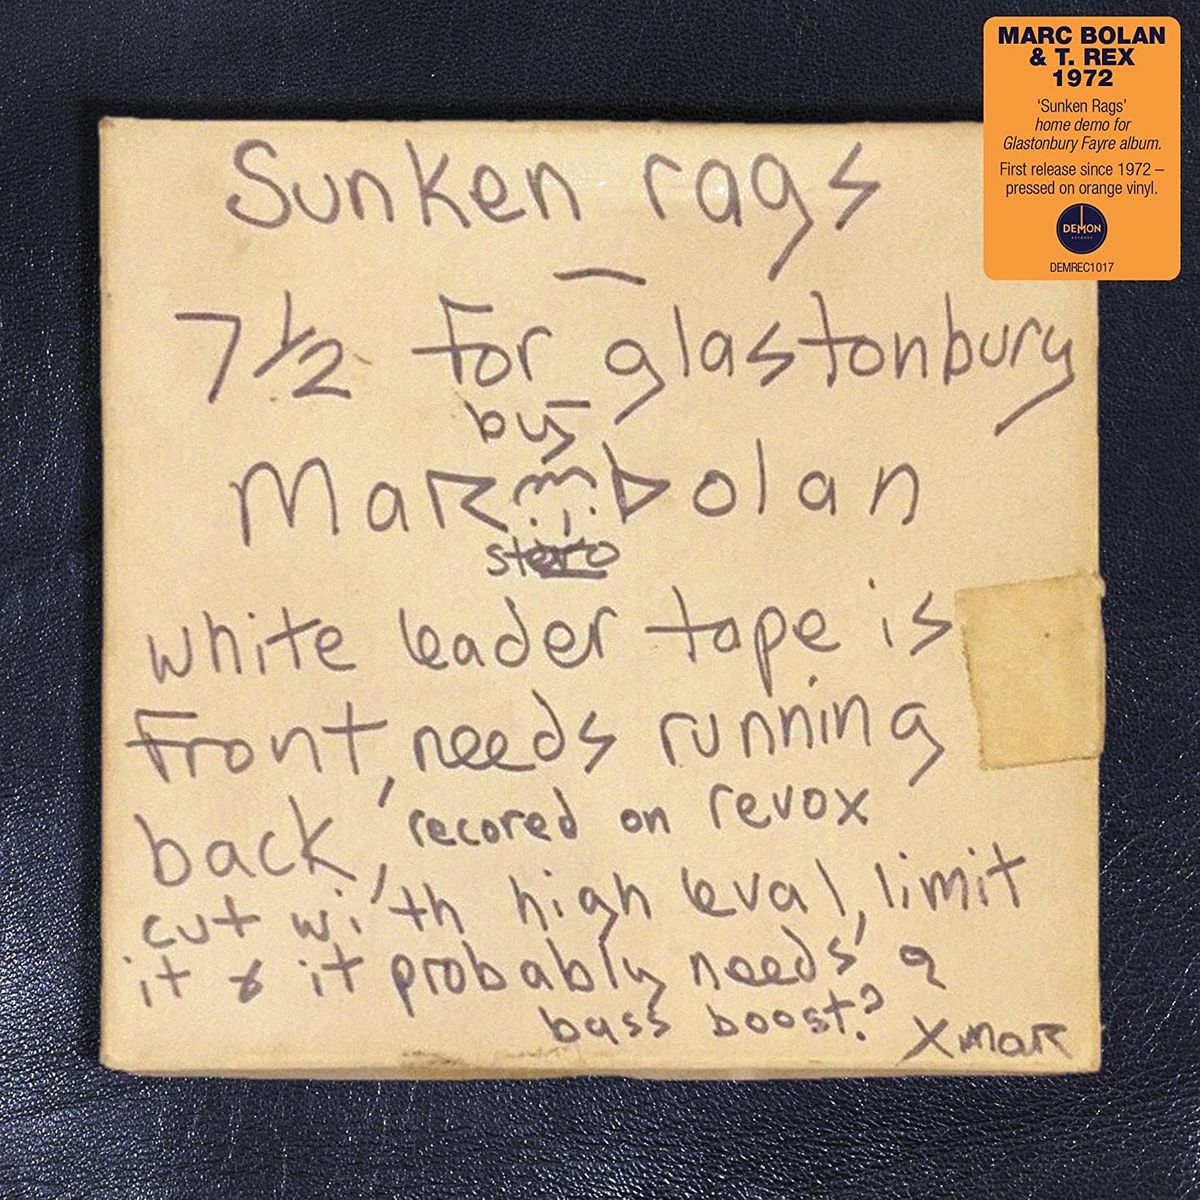 Sunken rags
7 1/2 for glastonbury
by
Marc bolan
stereo
white leader tape is
front, needs running
back, 'recored on revox
cut with high leval, limit
it & it probably needs' a
bass boost?
X Marc
MARC BOLAN
& T. REX
1972
‘Sunken Rags’
home demo for
Glastonbury Fayre album.
First release since 1972 –
pressed on orange vinyl.
DEMON
RECORDS
DEMREC1017